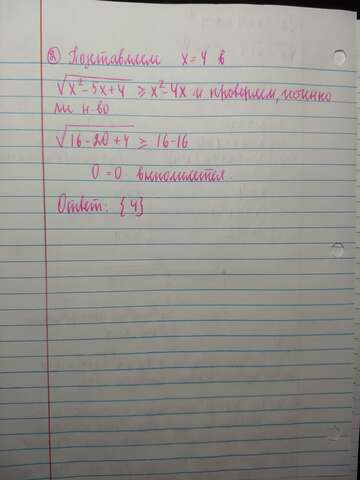 ② Подставляем x=4 в
√(x²-5x+4) ⩾ x²-4x и проверяем,
ли н-во
√(16-20+4) ⩾ 16-16
0=0 выполняется.
Ответ: {4}